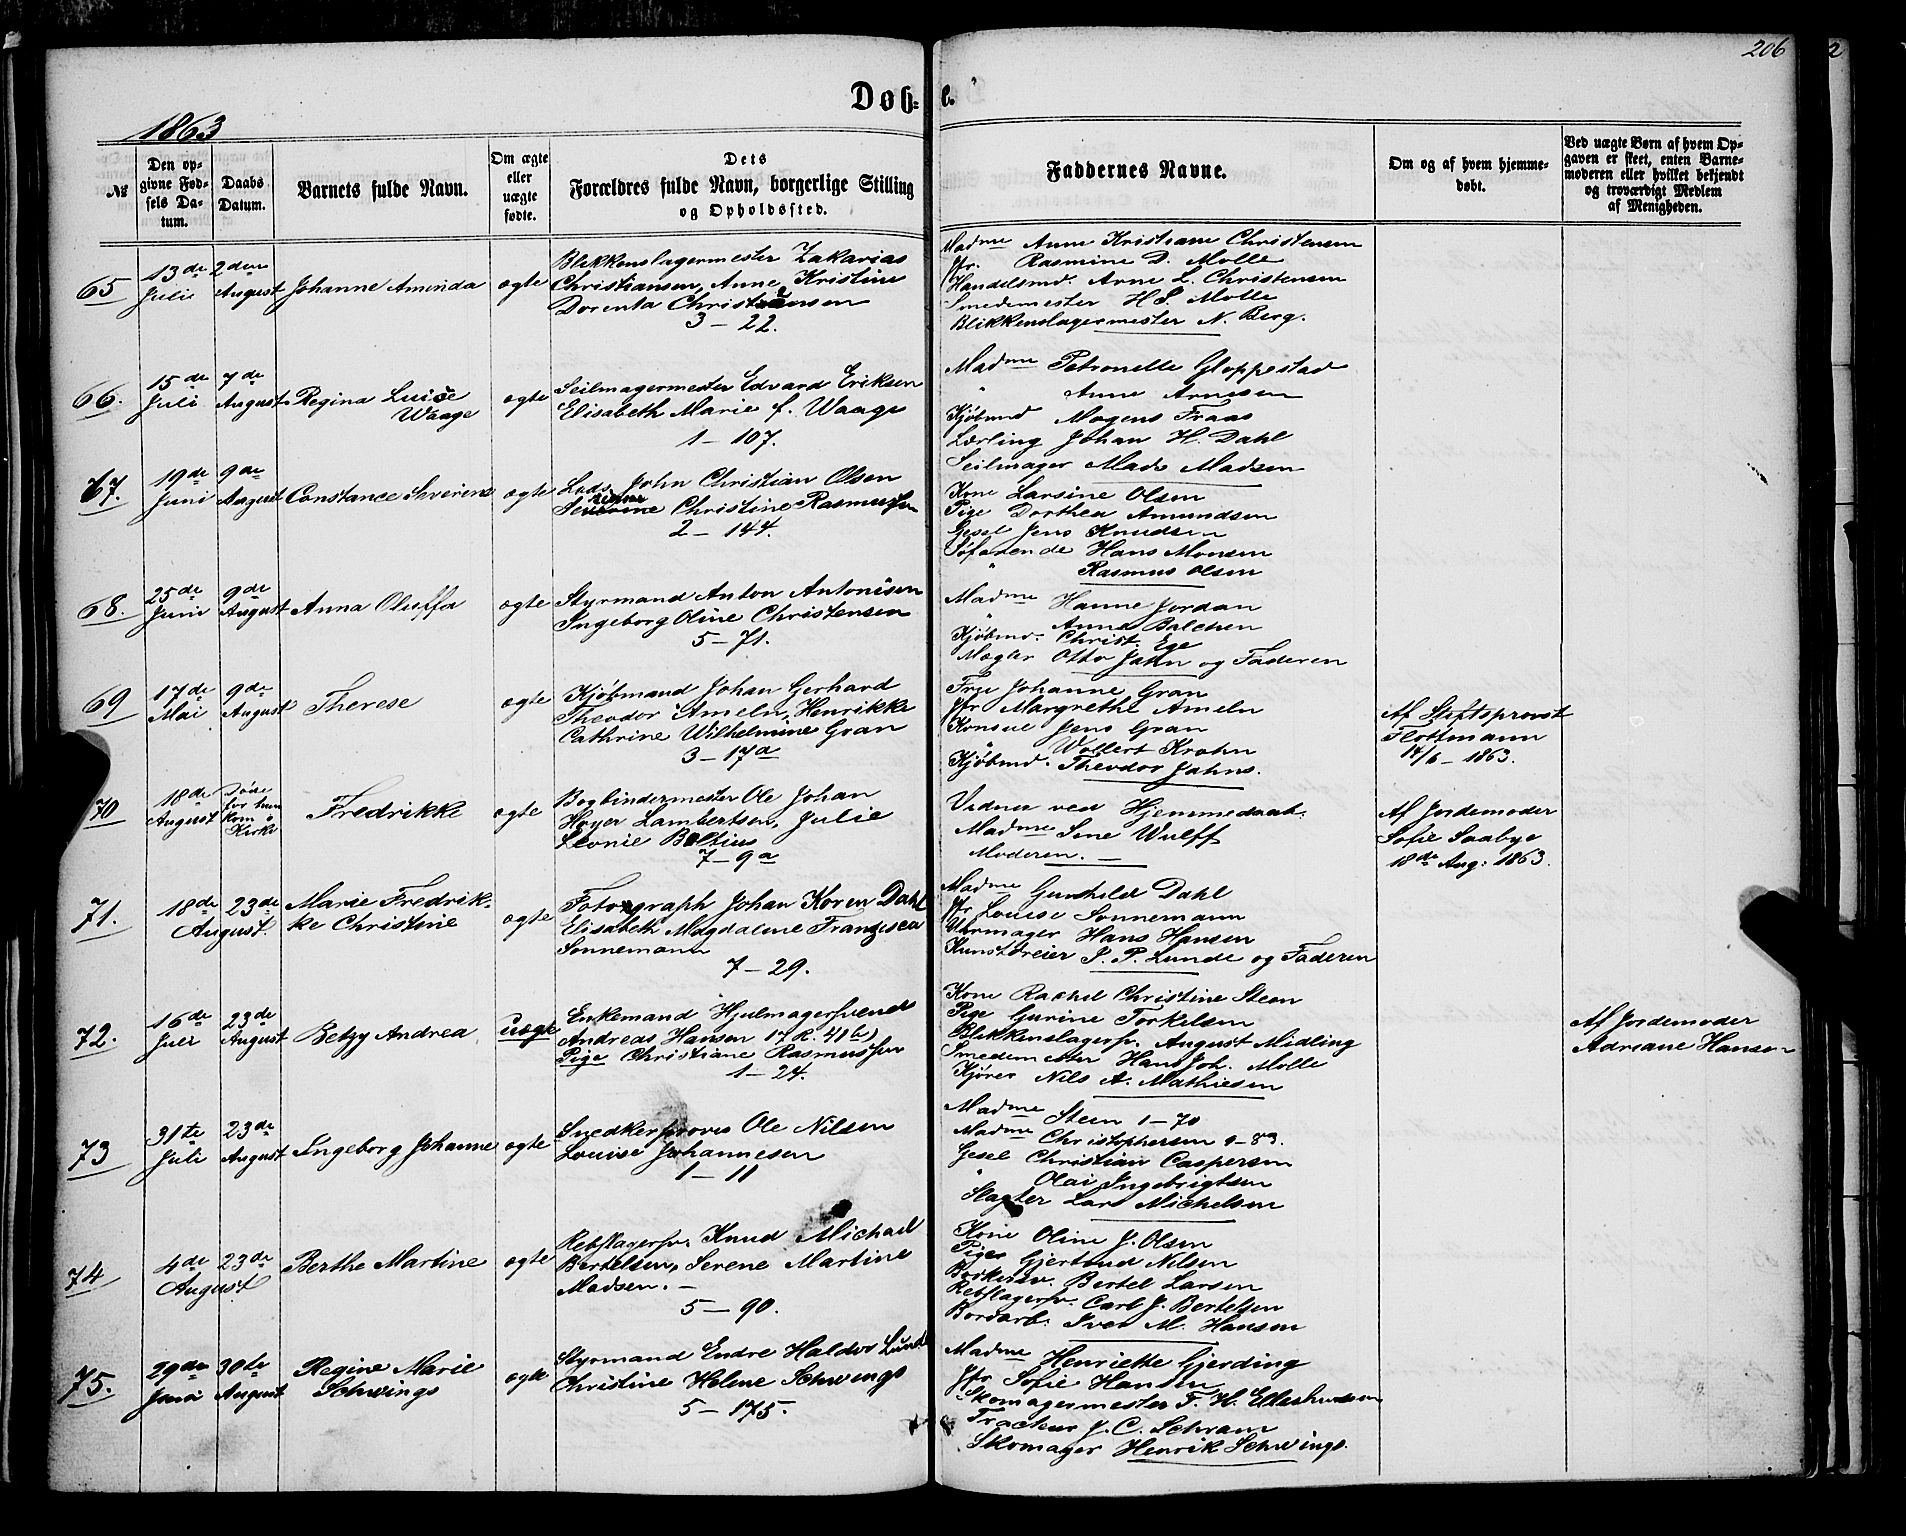 206
2
Døb- e.
1863
№
Den op-
givne Fød-
sels Da-
tum.
Daabs
Datum.
Barnets fulde Navn.
Om ægte
eller
uægte
fødte.
Dets
Forældres fulde Navn, borgerlige Stilling
og Opholdssted.
Faddernes Navne.
Om og af hvem hjemme-
døbt.
Ved uægte Børn af hvem Op-
gaven er skeet, enten Barne-
moderen eller hvilket bekjendt
og troværdigt Medlem
af Menigheden.
65
13de
Juli
2den
August
Johanne Amanda
ægte
Blikkenslagermester Zakarias
Christiansen, Anne Kristine
Dorenta Christensen
3 - 22.
Madme Anne Kristiane Christensen
Jfr. Rasmine D. Molle
Handelsmd. Arne L. Christensen
Smedemester H S. Molle
Blikkenslagermester N. Berg.
66.
15de
Juli
7de
August
Regina Luise
Waage
ægte
Seilmagermester Edvard Eriksen
Elisabeth Marie f. Waage
1 - 107.
Madme Petronelle Gloppestad
" Anne Arnesen
Kjøbmd Mogens Fraas
Lærling Johan H. Dahl
Seilmager Mads Madsen
67.
19de
Juni
9de
August
Constance Severine
ægte
Lods John Christian Olsen
Christine Rasmussen
2 - 144.
Kone Larsine Olsen
Pige Dorthea Amundsen
Gesel Jens Knudsen
Søfarende Hans Monsen
" Rasmus Olsen
68.
25de
Juni
9de
August
Anna Oluffa
ægte
Styrmand Anton Antonisen
Ingeborg Oline Christensen
5 - 71.
Madme Hanne Jordan
" Anne Balchen
Kjøbmd. Christ. Ege
Mægler Otto Jahn og Faderen
69
17de
Mai
9de
August
Therese
ægte
Kjøbmand Johan Gerhard
Theodor Ameln, Henrikke
Cathrine Wilhelmine Gran
3 - 17a
Fru Johanne Gran
Jfr Margrethe Ameln
Konsul Jens Gran
" Wollert Krohn
Kjøbmd. Theodor Jahns.
Af Stiftsprovst
Flottmann
14/6 - 1863.
70
18de
August
Døde
før han
kom i
Kirke
Fredrikke
ægte
Bogbindermester Ole Johan
Høyer Lambertsen, Julie
Leonie Boltius
7 - 9a
Vidner ved Hjemmedaab.
Madme Sene Wulff
Moderen. -
Af Jordemoder
Sofie Saabye
18de Aug: 1863.
71.
18de
23de
August.
Marie Fredrik-
ke Christine
ægte
Fotograph Johan Koren Dahl
Elisabeth Magdalene Franzisca
Sonnemann
7 - 29.
Madme Gunhild Dahl
Jfr Louise Sonnemann
Uhrmager Hans Hansen
Kunstdreier J. P. Lunde og Faderen
72.
16de
Juli
23de
August
Betzy Andrea
uægte
Enkemand Hjulmagersvend
Andreas Hansen 17 R. 41b)
Pige Christiane Rasmussen
1 - 24.
Kone Rachel Christine Steen
Pige Gurine Torkelsen
Blikkenslagersv. August Midling
Smedemester Hans Joh. Molle
Kjører Nils A. Mathiesen
Af Jordemoder
Adriane Hansen
73
31te
Juli
23de
August
Ingeborg Johanne
ægte
Snedkersvend Ole Nilsen
Louise Johannesen
1 - 11
Madme Steen 1 - 70
Madme Christophersen 1 - 83.
Gesel Christian Caspersen
" Olai Ingebrigtsen
Slagter Lars Michelsen
74
4de
23de
August
Berthe Martine
ægte
Rebslagersv. Knud Michael
Bertelsen, Serene Martine
Madsen. -
5 - 90.
Kone Oline J. Olsen
Pige Gjertrud Nilsen
Bødkersv. Bertel Larsen
Rebslagersv. Carl J. Bertelsen
Bordarb. Iver M. Hansen
75.
29de
Juni
30te
August
Regine Marie
Schwings
ægte
Styrmand Endre Haldor Lund
Christine Helene Schwings
5 - 175.
Madme Henriette Gjerding
Jfr Sofie Hansen
Skomagermester F. H. Ellerhusen
J. C. Schram
Skomager Henrik Schwings.